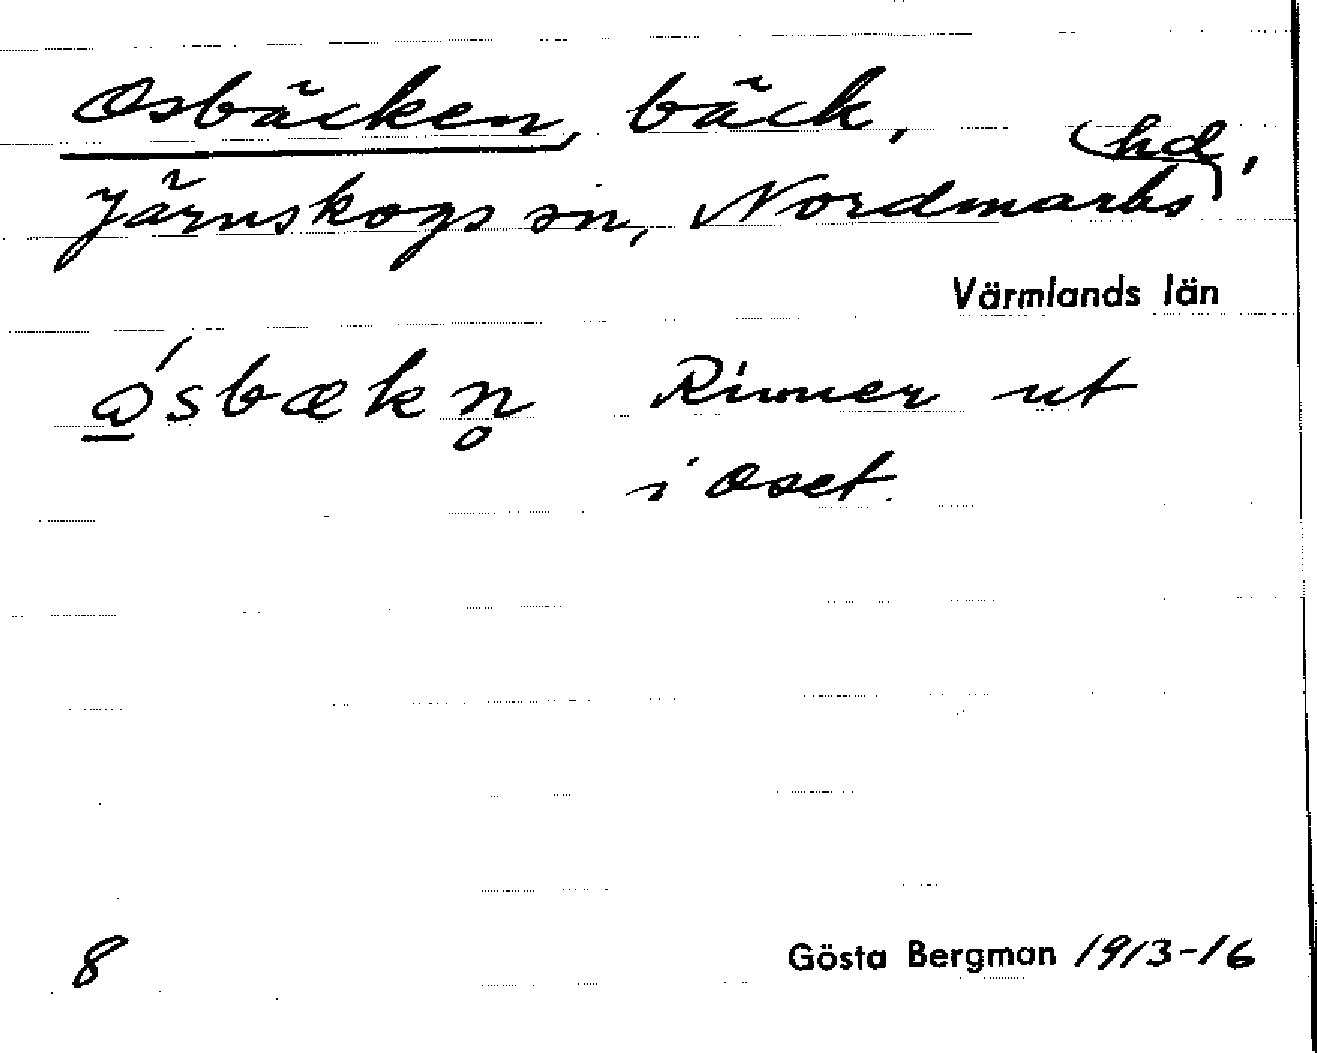 Osbäcken, bäck,
Järnskogs sn, Nordmarks hd,
Värmlands län
ó̲sbækn̥ Rinner ut
i Oset.
8 Gösta Bergman 1913-16